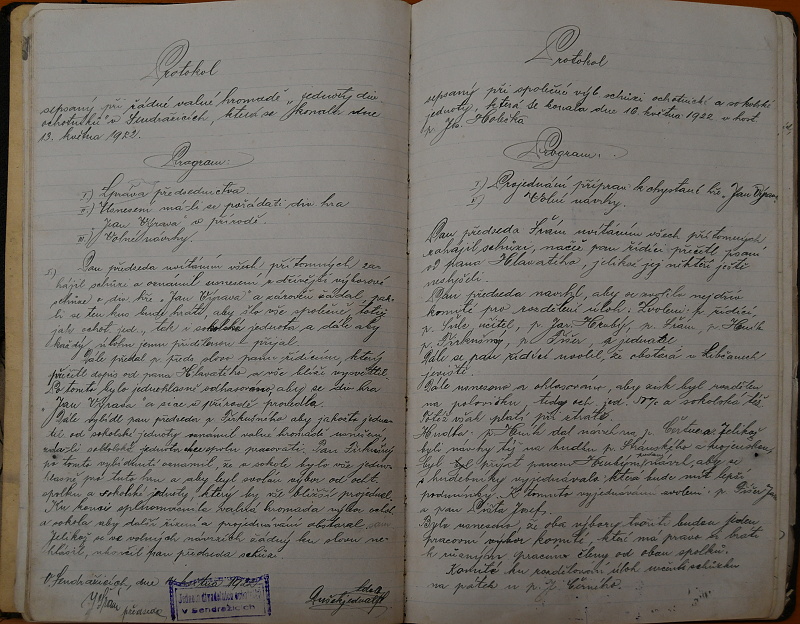 Protokol
sepsaný při řádné valné hromadě „Jednoty div.
ochotníků" v Sendražicích, která se konala dne
13. května 1922.
Program:
I.) Zpráva předsednictva.
II.) Usnesení má-li se pořádati div. hra
„Jan Výrava" v přírodě.
III.) Volné návrhy.
I.) Pan předseda uvítáním všech přítomných za-
hájil schůzi a oznámil usnesení z dřívější výborové
schůze o div. hře „Jan Výrava" a zároveň žádal, pak-
li se ten kus bude hráti, aby šlo vše společně, totiž
jak ochot. jed., tak i sokolská jednota a dále aby
každý úlohu jemu přidělenou přijal.
Dále předal p. předs. slovo panu řídícímu, který
přečetl dopis od pana Hlavatého a vše blíže vysvětlil.
Po tomto bylo jednohlasně odhlasováno, aby se div. hra
„Jan Výrava" a sice v přírodě provedla.
Dále vybídl pan předseda p. Jirkušného aby jakožto jedna-
tel od sokolské jednoty oznámil valné hromadě usnesení,
zda-li sokolská jednota chce spolu pracovati. Pan Jirkušný
po tomto vybídnutí oznámil, že v sokole bylo vše jedno-
hlasně pro tuto hru a aby byl svolán výbor od ocht.
spolku a sokolské jednoty, který by vše bližší projednal.
Ku konci splnomocnila valná hromada výbor ochot.
a sokola aby další řízení a projednávání obstaral.
Jelikož se ve volných návrzích žádný ku slovu ne-
hlásil, ukončil pan předseda schůzi.
V Sendražicích, dne
předseda
jednatel
v Sendražicích
Protokol
sepsaný při společné výb. schůzi ochotnické a sokolské
jednoty, která se konala dne 16. května 1922 v host.
p. Jos. Holečka
Program:
I.) Projednání příprav k chystané hře „Jan Výrava"
II.) Volné návrhy.
Pan předseda Šrám uvítáním všech přítomných
zahájil schůzi, načež pan řídící přečetl psaní
od pana Hlavatého, jelikož jej někteří ještě
neslyšeli.
Pan předseda navrhl, aby se zvolilo nejdřív
komité pro rozdělení úloh. Zvoleni: p. řídící,
učitel, p. Jar. Hrubý, p. Šrám,
p. Jirkušný, a jednatel.
Dále se pan řídící uvolil, že obstará v Libčanech
jeviště.
Dále usneseno a ohlasováno, aby zisk byl rozdělen
na polovičku, tedy och. jed. 50% a sokolská též.
Totéž však platí při ztrátě.
Hudba: p. dal návrh na p. Jelikož
byly návrhy též na hudbu p. a vojenskou,
byl přijat návrh, aby se
s hudebníky vyjednávalo, která bude mít lepší
podmínky. K tomuto vyjednávání zvoleni: p.
a pan Josef.
Bylo usneseno, že oba výbory tvořiti budou jeden
pracovní výbor komité, které má právo si bráti
k různým pracem členy od obou spolků.
Komité ku rozdělování úloh určilo schůzku
na pátek u p. J. Černého.